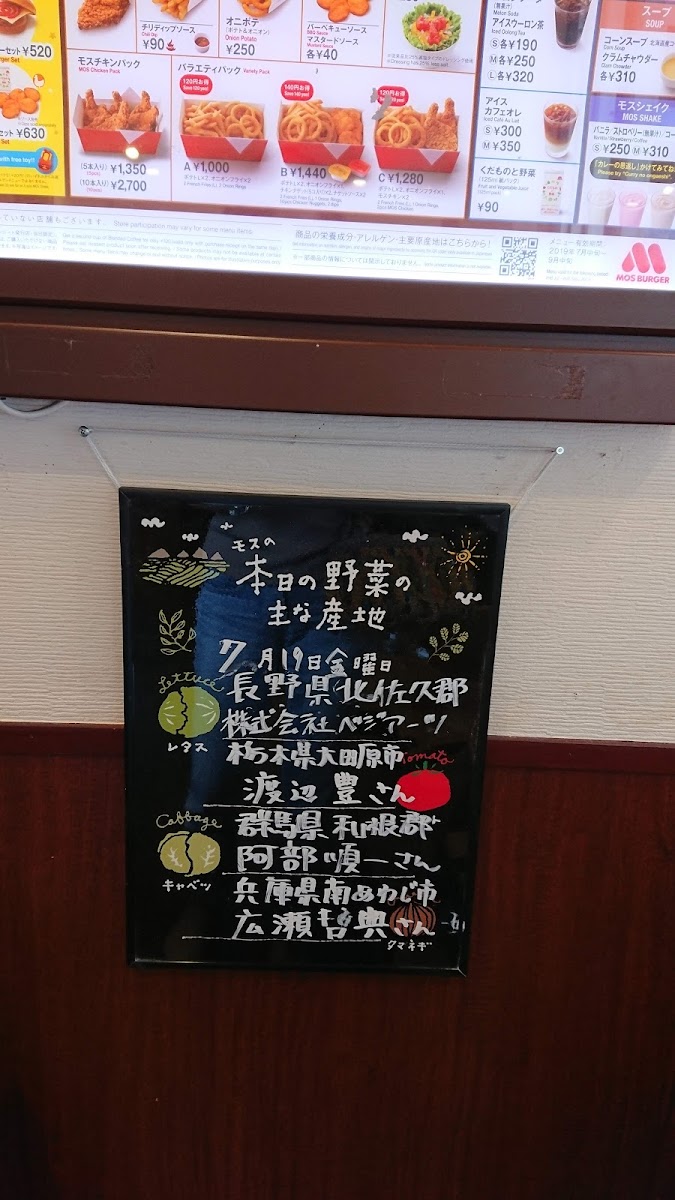 ーセット ¥520
セット ¥630
with free toy!!
チリディップソース
Chili Dip
¥90
オニポテ
(ポテト&オニオン)
Onion Potato
¥250
バーベキューソース
BBQ Sauce
マスタードソース
Mustard Sauce
各¥40
モスチキンパック
MOS Chicken Pack
(5本入り) ¥1,350
(10本入り) ¥2,700
バラエティパック Variety Pack
120円お得
A ¥1,000
140円お得
B ¥1,440
120円お得
C ¥1,280
Melon Soda
アイスウーロン茶
Iced Oolong Tea
S 各¥190
M 各¥250
L 各¥320
アイス
カフェオレ
Iced Café Au Lait
S ¥300
M ¥350
くだものと野菜
¥90
スープ
SOUP
コーンスープ
Corn Soup
クラムチャウダー
Clam Chowder
各¥310
モスシェイク
MOS SHAKE
バニラ ストロベリー
S ¥250 M ¥310
商品の栄養成分・アレルギー・主要原産地はこちらから!
メニュー有効期間
2019年7月中旬〜
9月中旬
MOS BURGER
モスの
本日の野菜の
主な産地
7月19日金曜日
Lettuce
長野県北佐久郡
株式会社ベジアーツ
レタス
栃木県大田原市
Tomato
渡辺豊さん
Cabbage
群馬県利根郡
阿部順一さん
キャベツ
兵庫県南あわじ市
広瀬哲典さん
タマネギ